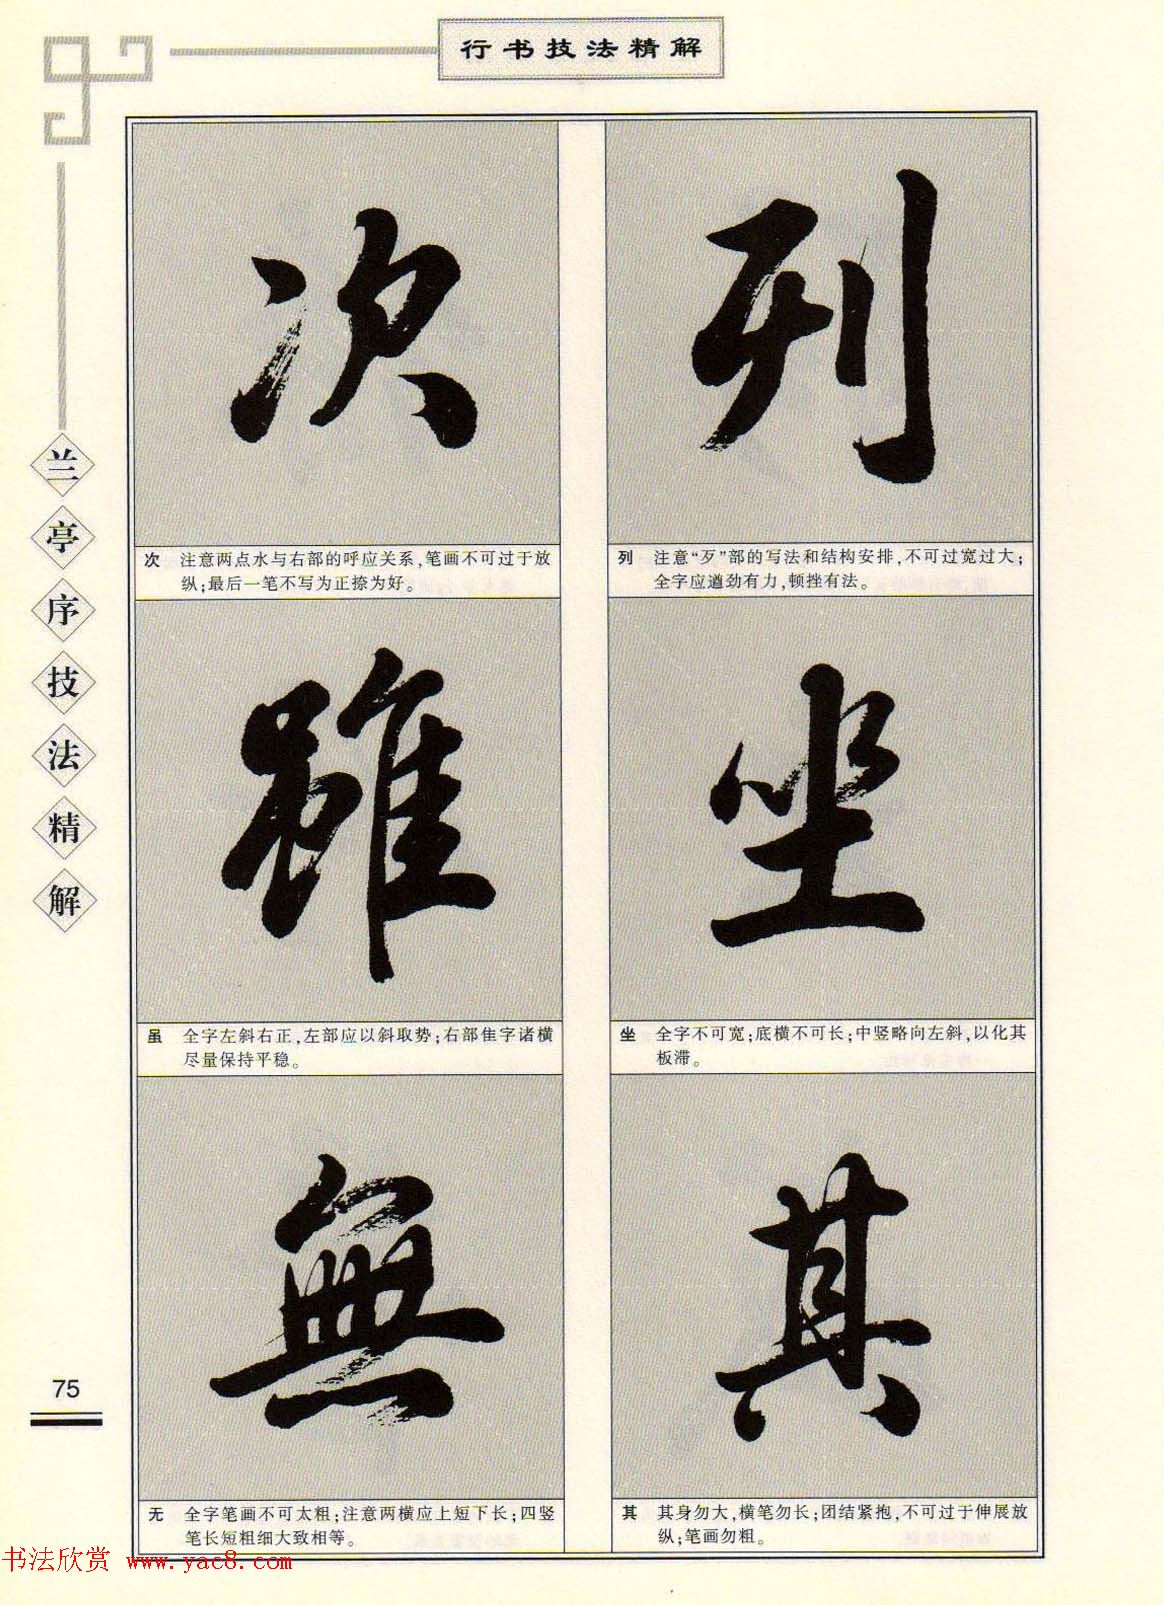 行书技法精解
兰亭序技法精解
列
列 注意“歹”部的写法和结构安排,不可过宽过大;
全字应遒劲有力,顿挫有法。
坐
坐 全字不可宽;底横不可长;中竖略向左斜,以化其
板滞。
其
其 其身勿大,横笔勿长;团结紧抱,不可过于伸展放
纵;笔画勿粗。
次
次 注意两点水与右部的呼应关系,笔画不可过于放
纵;最后一笔不写为正捺为好。
雖
虽 全字左斜右正,左部应以斜取势;右部隹字诸横
尽量保持平稳。
無
无 全字笔画不可太粗;注意两横应上短下长;四竖
笔长短粗细大致相等。
75
书法欣赏 www.yac8.com